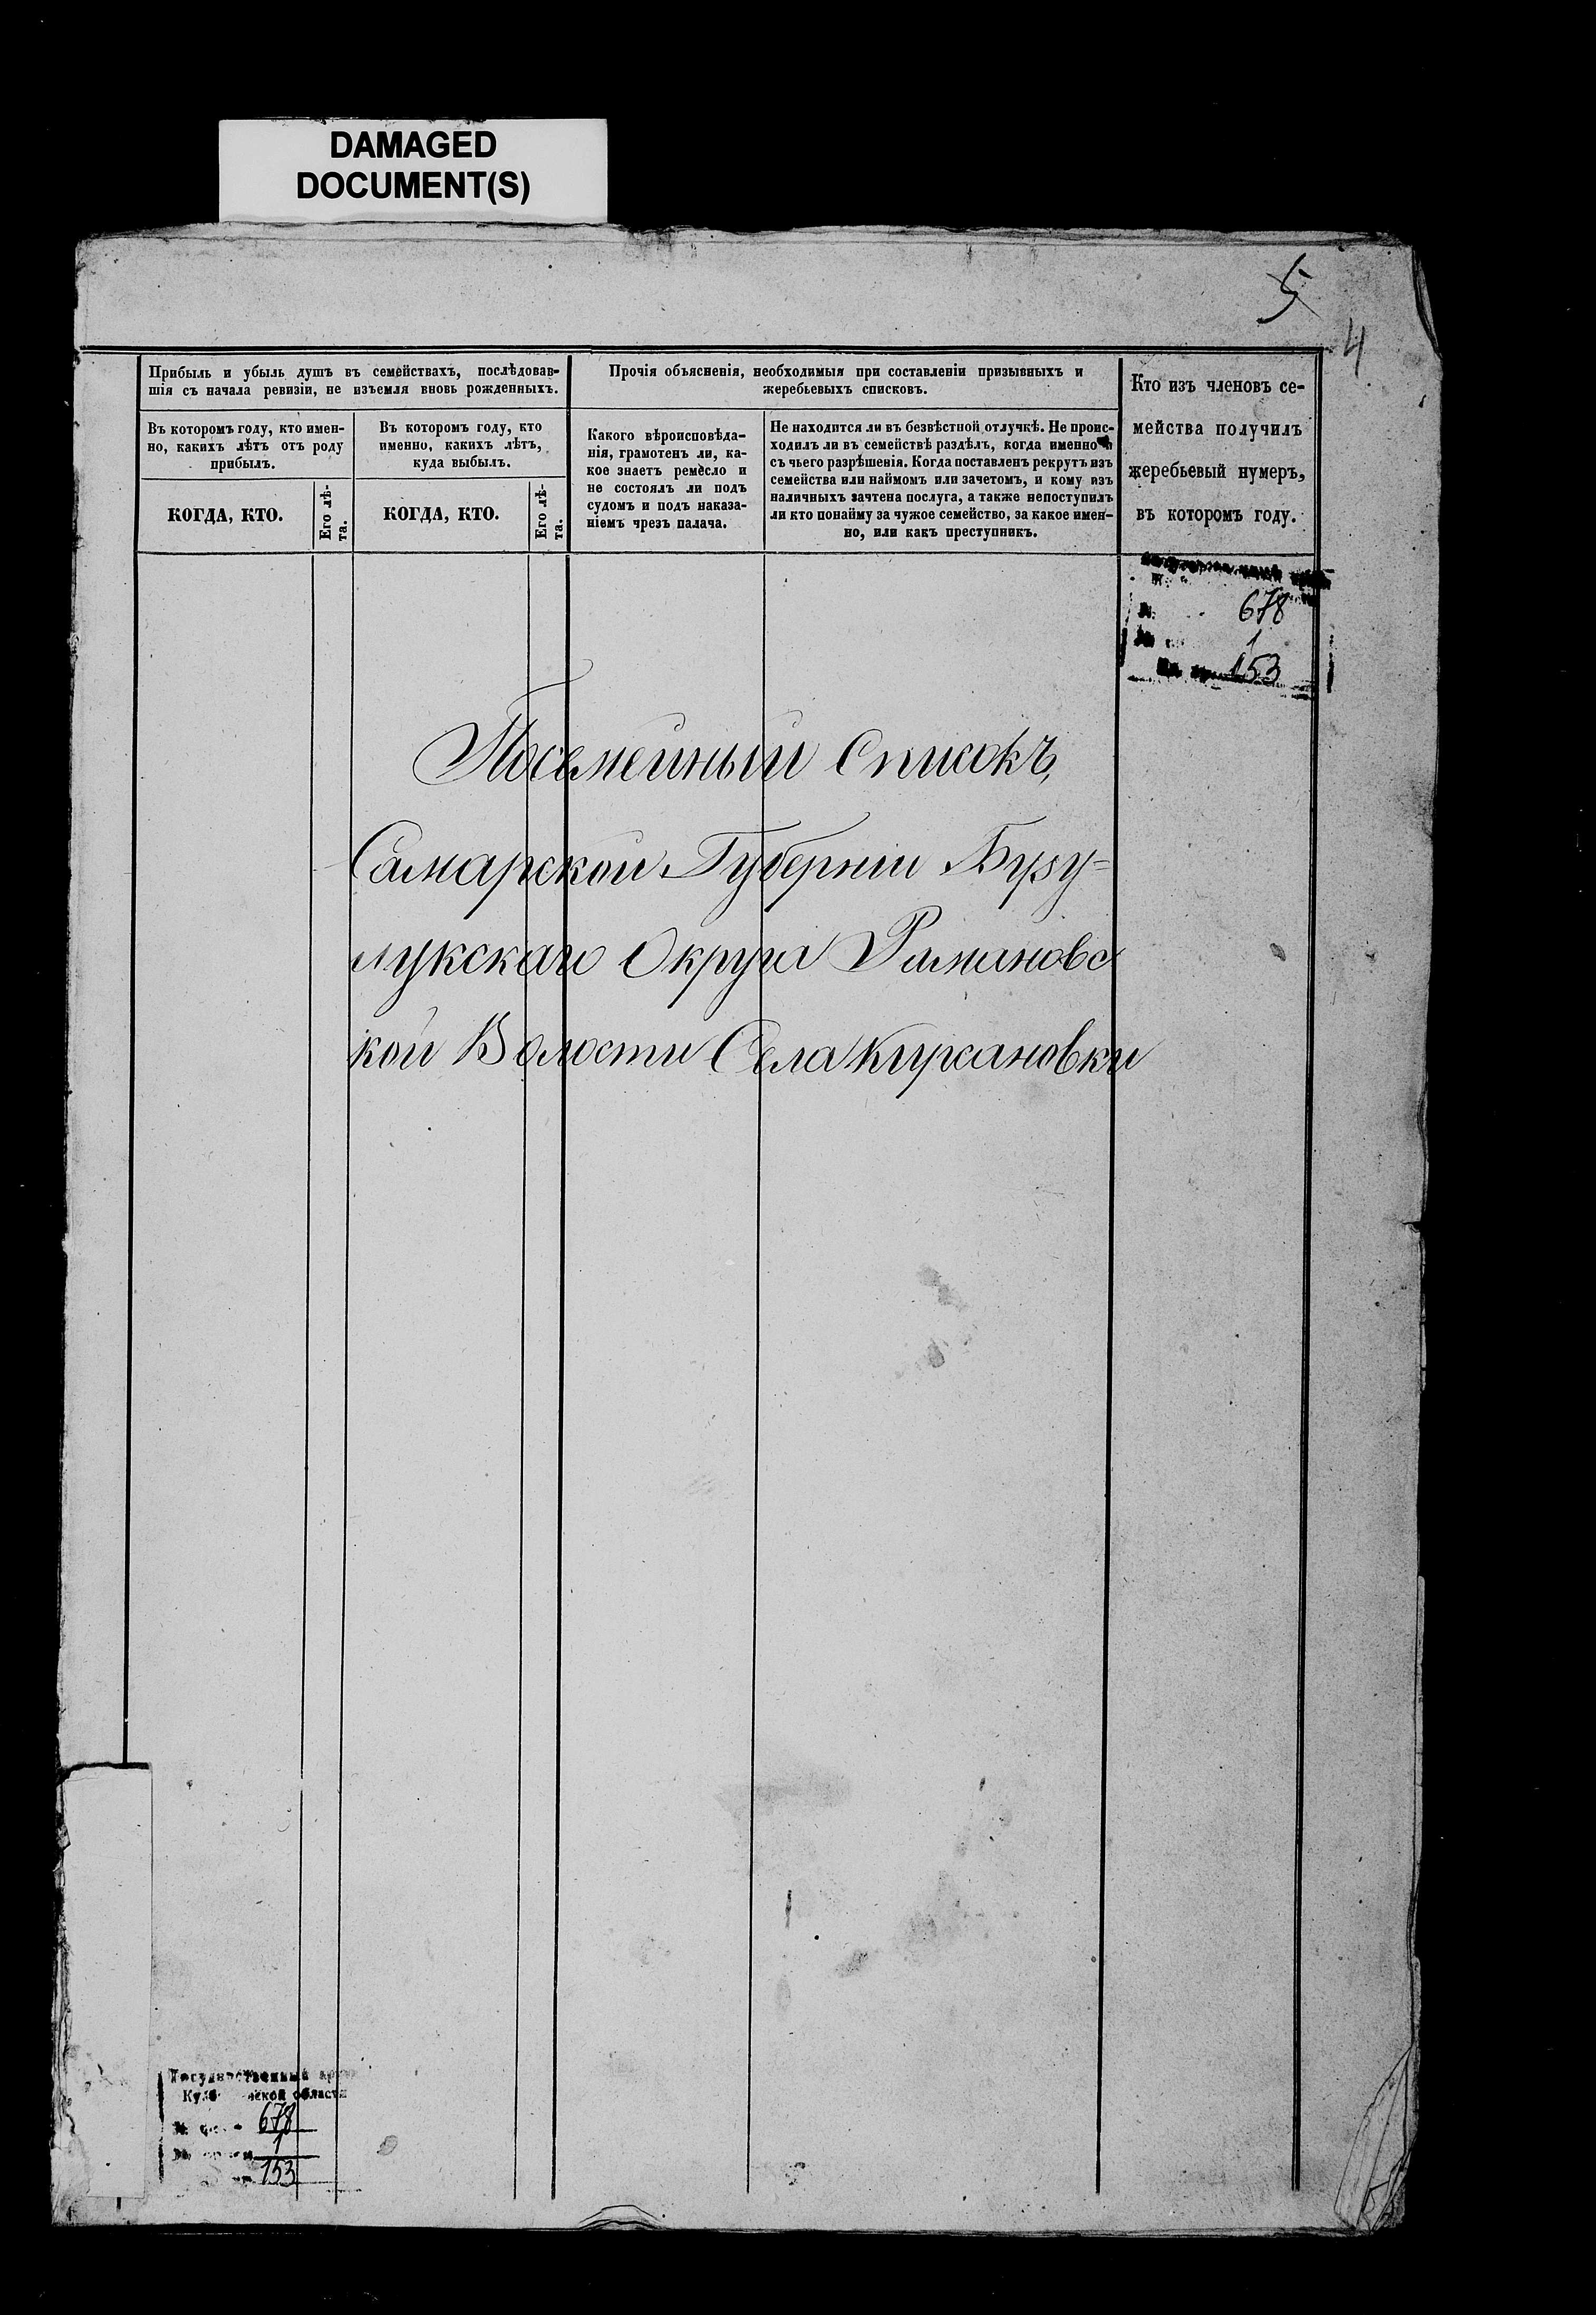 DAMAGED
DOCUMENT(S)
5
4
Прибыль и убыль душъ въ семействахъ, послѣдовав-
шія съ начала ревизіи, не изъемля вновь рожденныхъ.
Въ которомъ году, кто имен-
но, какихъ лѣтъ отъ роду
прибылъ.
КОГДА, КТО.
Его лѣ-
та.
Въ которомъ году, кто
именно, какихъ лѣтъ,
куда выбылъ.
КОГДА, КТО.
Его лѣ-
та.
Прочія объясненія, необходимыя при составленіи призывныхъ и
жеребьевыхъ списковъ.
Какого вѣроисповѣда-
нія, грамотенъ ли, ка-
кое знаетъ ремесло и
не состоялъ ли подъ
судомъ и подъ наказа-
ніемъ чрезъ палача.
Не находится ли въ безвѣстной отлучкѣ. Не проис-
ходилъ ли въ семействѣ раздѣлъ, когда именно и
съ чьего разрѣшенія. Когда поставленъ рекрутъ изъ
семейства или наймомъ или зачетомъ, и кому изъ
наличныхъ зачтена послуга, а также непоступилъ
ли кто понайму за чужое семейство, за какое имен-
но, или какъ преступникъ.
Кто изъ членовъ се-
мейства получилъ
жеребьевый нумеръ,
въ которомъ году.
678
1
153
Посемейный Списокъ,
Самарской Губерніи Бузу=
лукскаго Округа Рамановс
кой Волости Села Кирсановки
Государственный
области
678
1
153